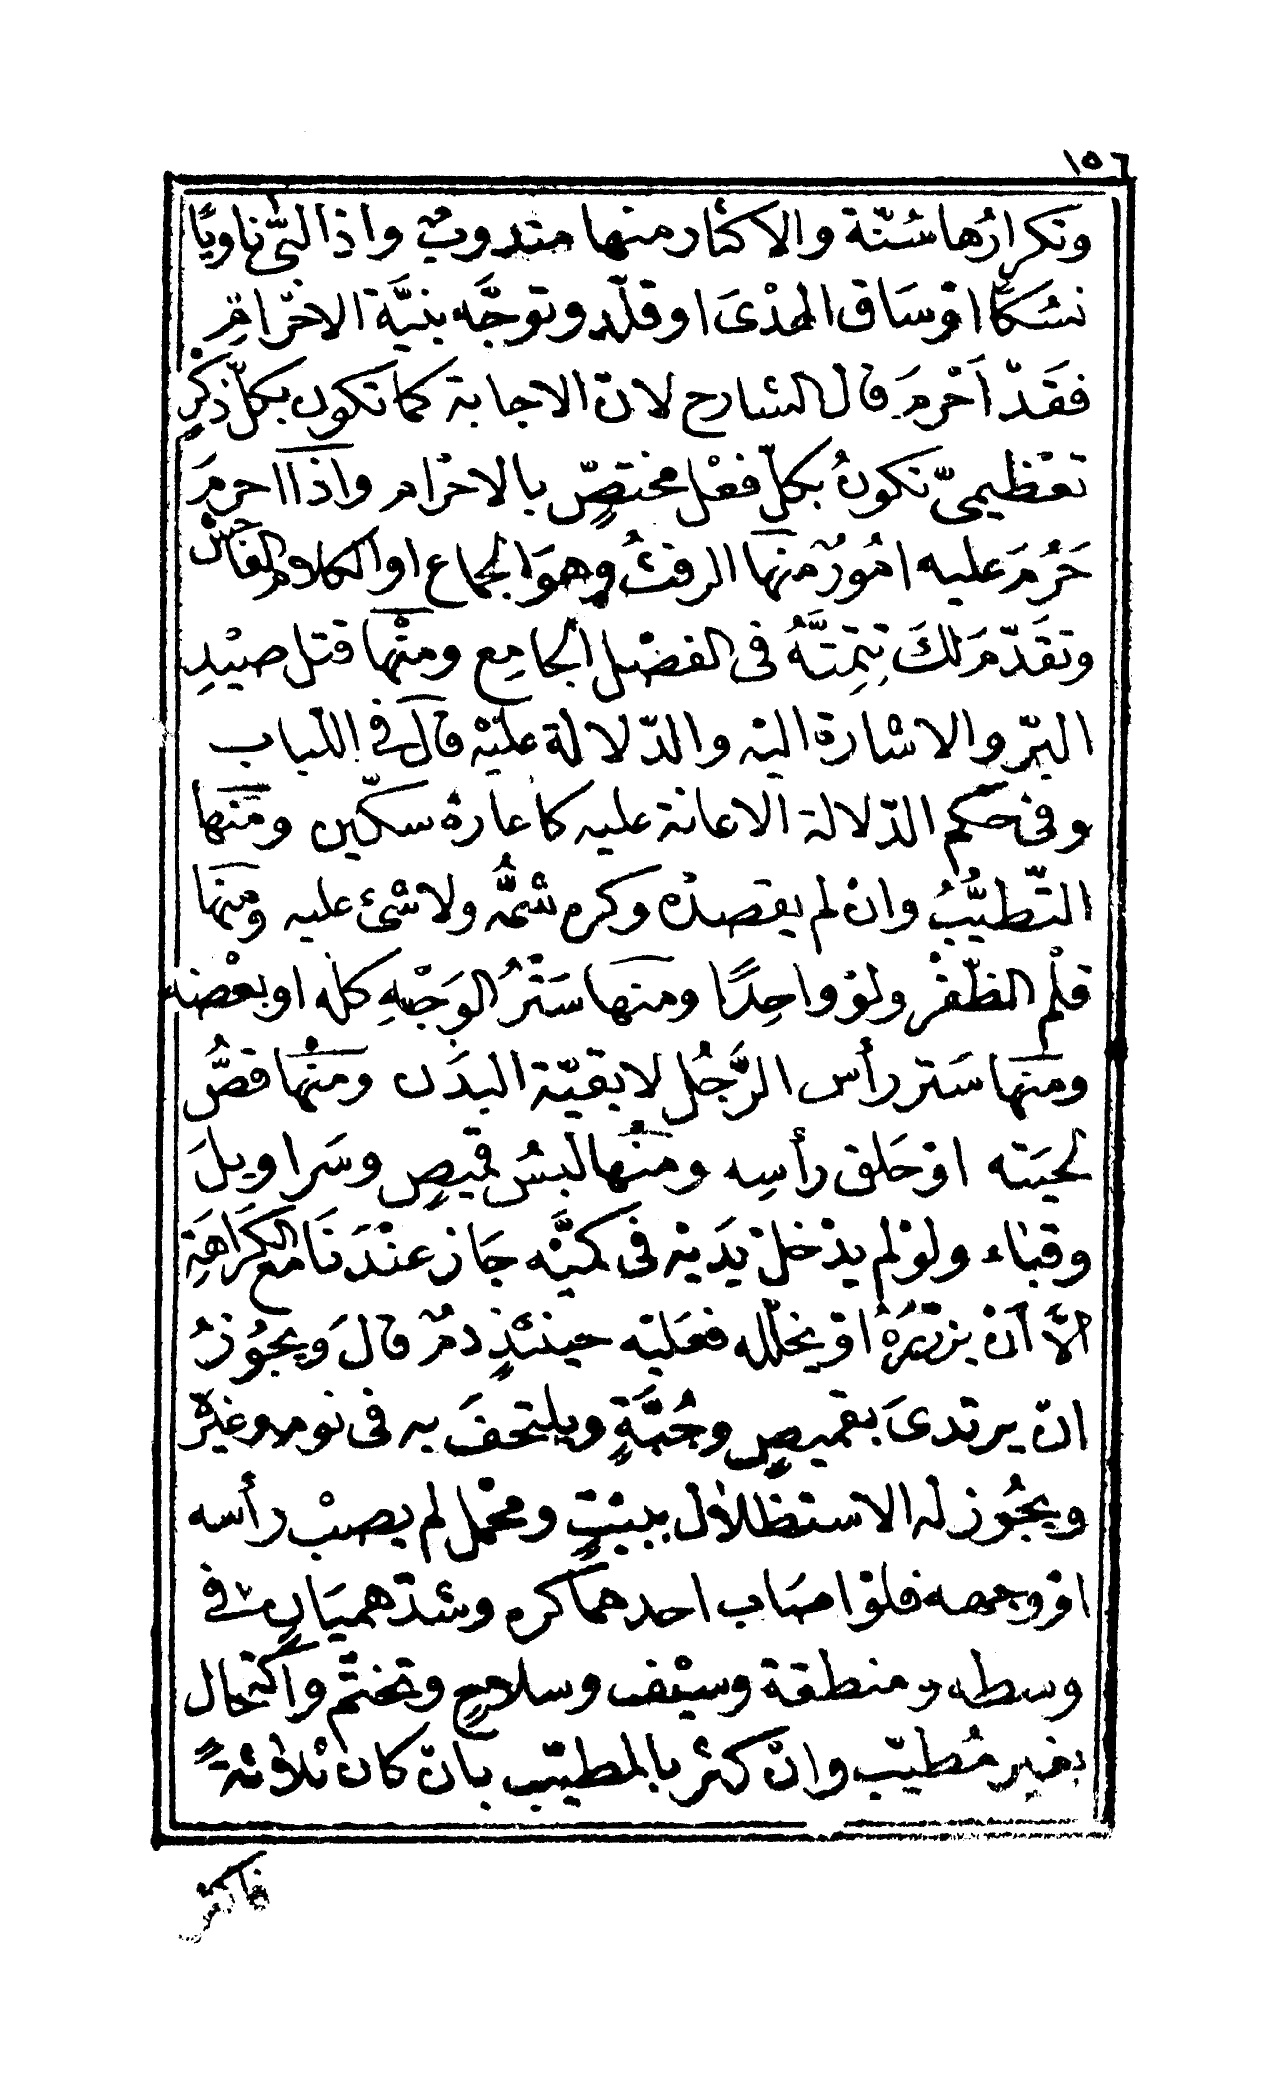 ١٥٦
وتكرارُها سُنّة والاكثار منها مندوبٌ واذا لبّى ناويًا
نسُكًا اوْ سَاق الهدْىَ او قلّد وتوجَّه بنيَّة الاحْرَام
فقَدْ اَحْرمَ قال الشارح لانّ الاجابة كما تكون بكلّ ذكْرٍ
تعْظيمىّ تكونُ بكلّ فعْل مختصٍّ بالاحْرام واذا احرمَ
حَرُمَ عليه امُورٌ منها الرفثُ وهوَ الجماع او الكلام الفاحش
وتقَدّمَ لكَ تتِمتَّهُ فى الفصْل الجامِع ومنْها قتل صيْدِ
البرّ والاشارة اليْه والدّلالة عليْه قال فى اللباب
وفى حكْم الدّلالة الاعانة عليه كاعارة سكّين ومنها
التّطيُّبُ وانْ لم يقصدْه وكره شمُّه ولا شىْء عليه ومنها
قلْم الظّفرْ ولوْ واحِدًا ومنها سَتْرُ الوَجْهِ كله او بعْضه
ومنها سَتر رأس الرَّجُل لا بقيّة البدَن ومنْها قصُّ
لحيَته اوْ حَلق رأسِه ومنْها لبسُ قميصٍ وسَراويلَ
وقباء ولوْ لم يدْخلْ يدَيْه فى كميَّه جَاز عنْدَنَا مع الكرَاهَةِ
الاَّ اَنْ يزرّرَهُ اوْ يخلّله فعَليْه حينئذٍ دمٌ قالَ ويجُوزُ
انْ يرتدىَ بقميصٍ وجُبَّةٍ ويلتحفَ به فى نومه وغيره
ويجُوز له الاستظلال ببيْتٍ ومحْمل لم يصبْ رأسه
اوْ وجهه فلوْ اصَاب احدهما كره وشدّ هميَانٍ فى
وسطه ومنطقة وسيْف وسلاحٍ وتختّم واكتحال
بغير مُطيّب وانْ كثر بالمطيّب بانْ كان ثلاثةً
فاكثر